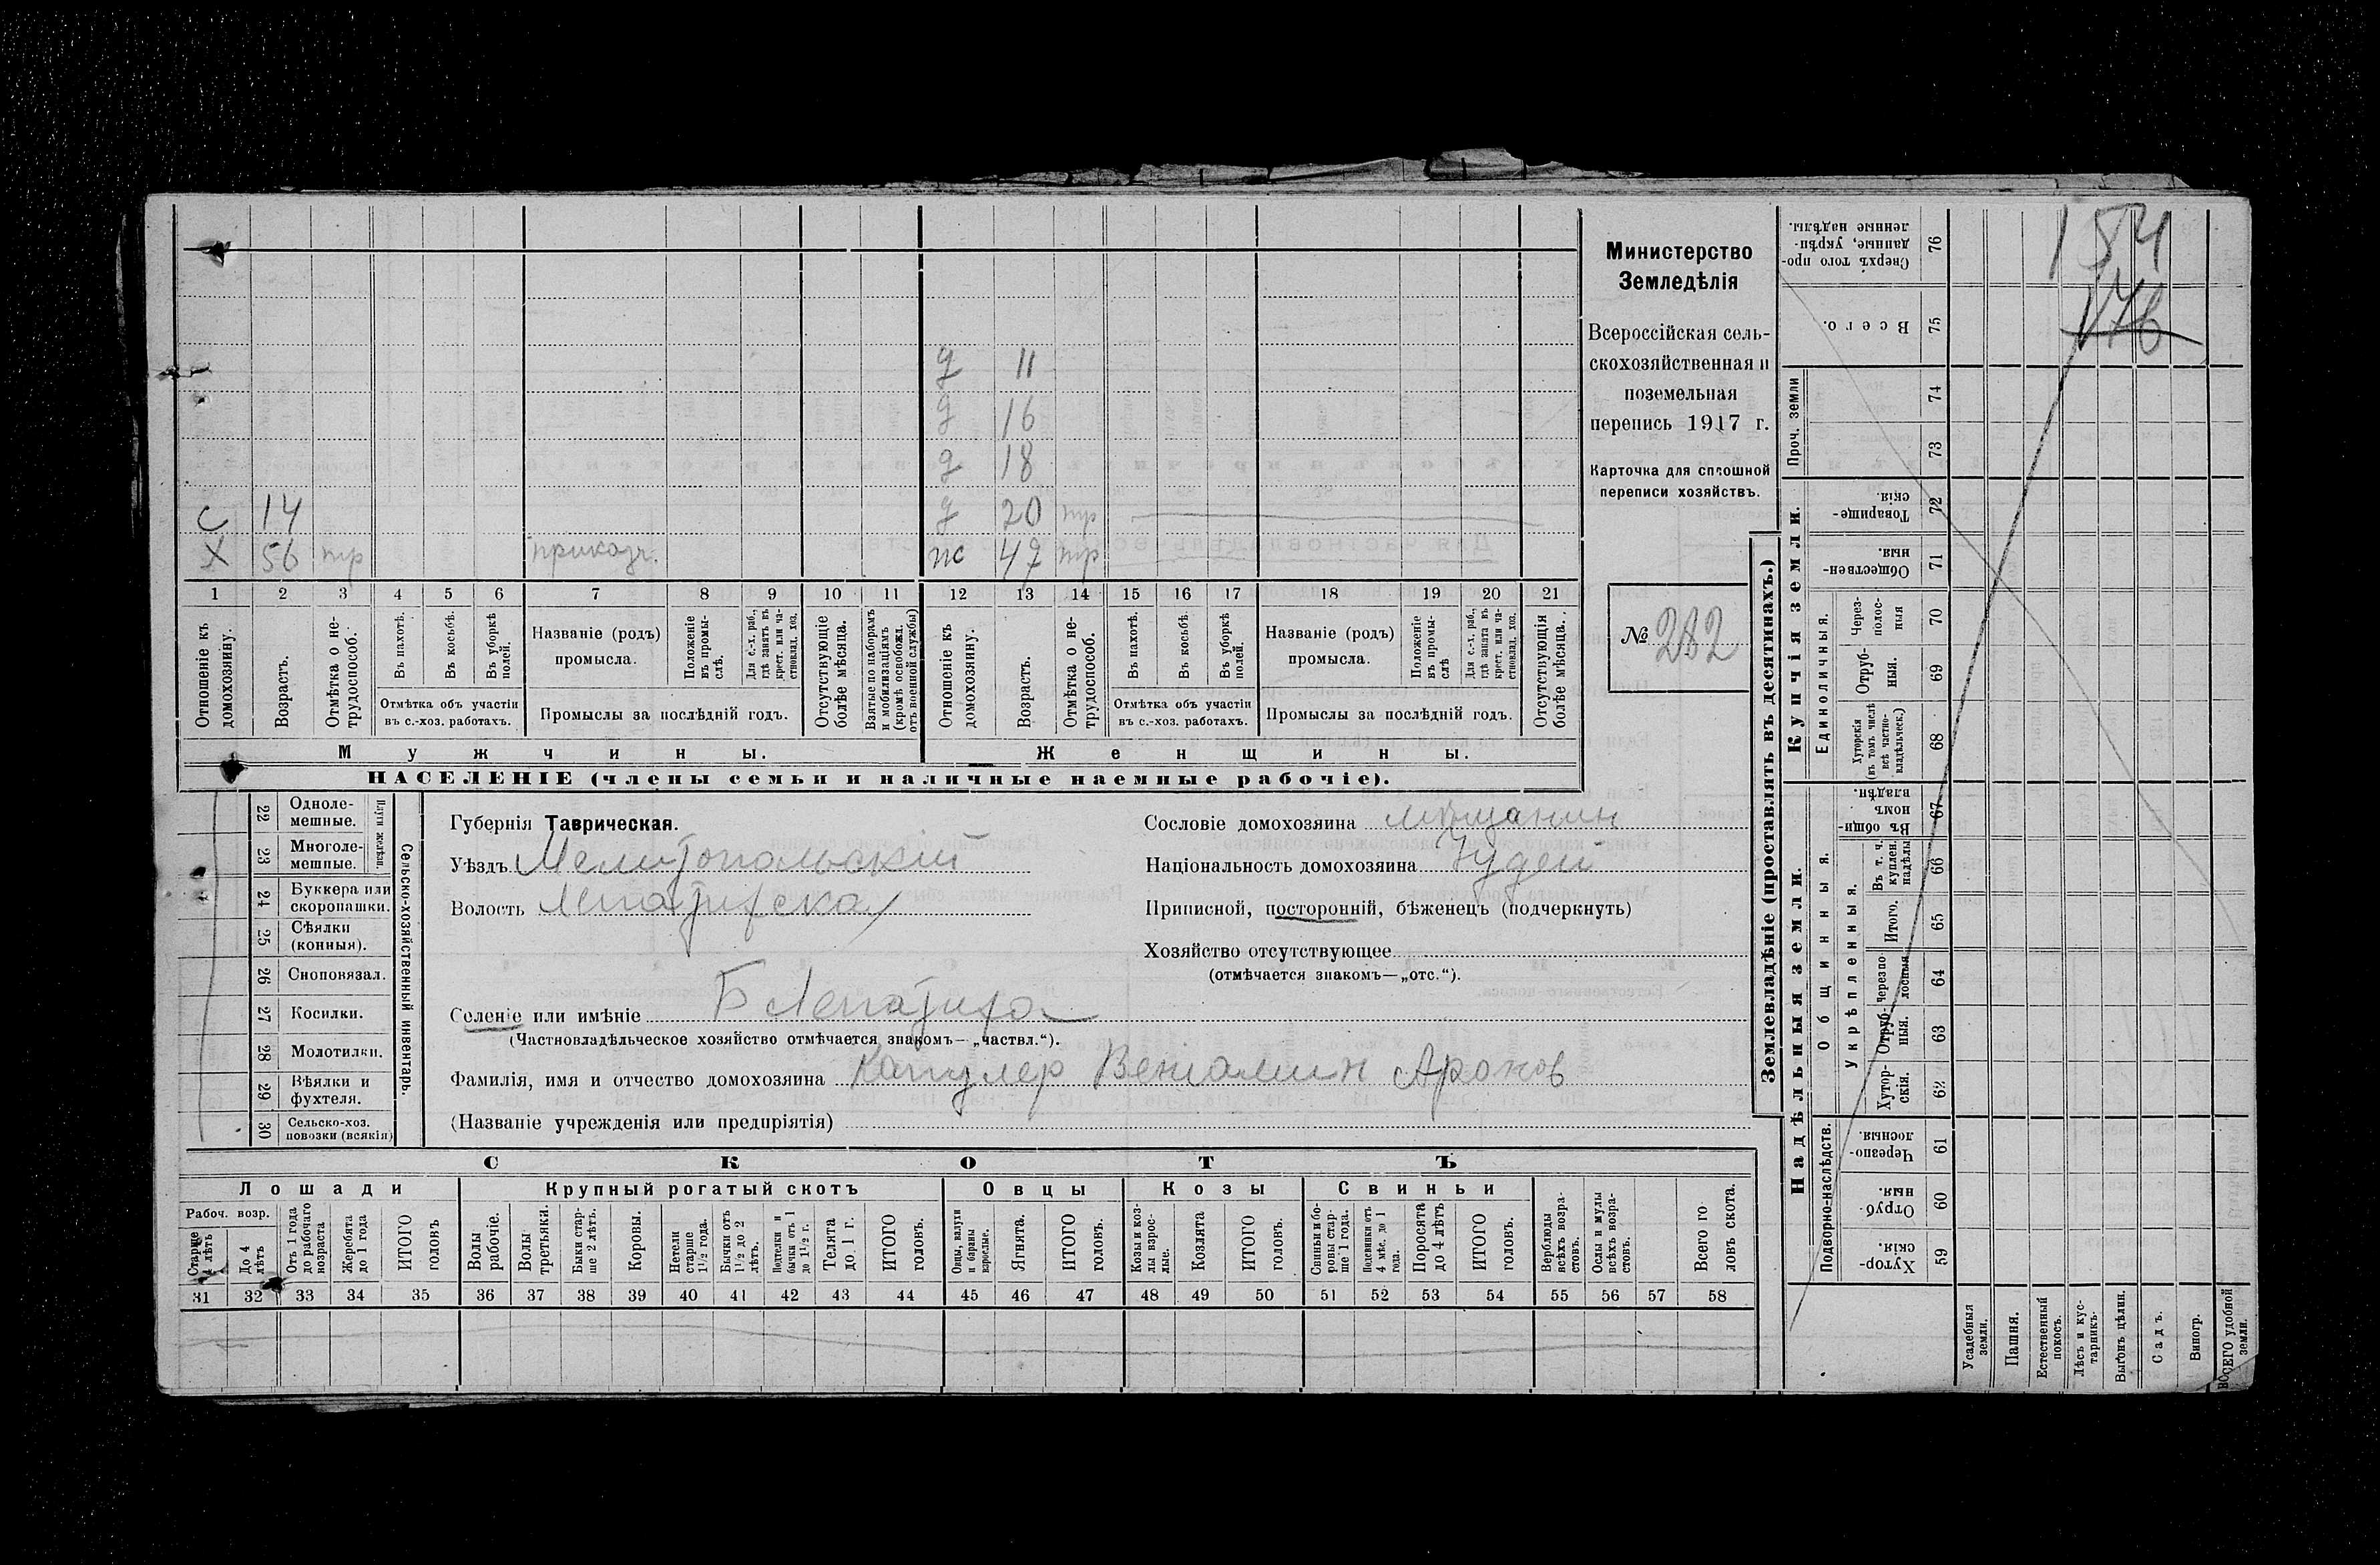 Министерство
Земледѣлія
Всероссійская сель-
скохозяйственная и
поземельная
перепись 1917 г.
Карточка для сплошной
переписи хозяйствъ.
№ 282
д 11
д 16
д 18
с 14 д 20 тр
х 56 тр приказч. жс 47 тр
1 2 3 4 5 6 7 8 9 10 11 12 13 14 15 16 17 18 19 20 21
Отношеніе къ домохозяину.
Возрастъ.
Отмѣтка о не-трудоспособ.
Въ пахотѣ.
Въ косьбѣ.
Въ уборкѣ полей.
Отмѣтка объ участіи
въ с.-хоз. работахъ.
Названіе (родъ)
промысла.
Положеніе въ промы-слѣ.
Для с.-х. раб., гдѣ занятъ въ крест. или ча-стновлад. хоз.
Промыслы за послѣдній годъ.
Отсутствующіе болѣе мѣсяца.
Взятые по наборамъ и мобилизаціямъ (кромѣ освобожд. отъ военной службы)
Отношеніе къ домохозяину.
Возрастъ.
Отмѣтка о не-трудоспособ.
Въ пахотѣ.
Въ косьбѣ.
Въ уборкѣ полей.
Отмѣтка объ участіи
въ с.-хоз. работахъ.
Названіе (родъ)
промысла.
Положеніе въ промы-слѣ
Для с.-х. раб., гдѣ занята въ крест. или ча-стновлад. хоз.
Промыслы за послѣдній годъ.
Отсутствующія болѣе мѣсяца.
Мужчины. Женщины.
НАСЕЛЕНІЕ (члены семьи и наличные наемные рабочіе).
Сельско-хозяйственный инвентарь.
22 Одноле-мешные.
23 Многоле-мешные.
24 Буккера или скоропашки.
25 Сѣялки (конныя).
26 Сноповязал.
27 Косилки.
28 Молотилки.
29 Вѣялки и фухтеля.
30 Сельско-хоз. повозки (всякія)
Губернія Таврическая.
Уѣздъ Мелитопольскій
Волость
Селеніе или имѣніе Б Лепатиха
(Частновладѣльческое хозяйство отмѣчается знакомъ—„частвл.“).
Фамилія, имя и отчество домохозяина Капулер Веніамин Аронов
(Названіе учрежденія или предпріятія)
Сословіе домохозяина мѣщанинъ
Національность домохозяина Іудей
Приписной, посторонній, бѣженецъ (подчеркнуть)
Хозяйство отсутствующее
(отмѣчается знакомъ—„отс.“).
СКОТЪ
Лошади Крупный рогатый скотъ Овцы Козы Свиньи
Рабоч. возр.
Старше 4 лѣтъ
До 4 лѣтъ
Отъ 1 года до рабочаго возраста
Жеребята до 1 года
ИТОГО головъ
Волы рабочіе.
Волы третьяки.
Быки стар-ше 2 лѣтъ.
Коровы.
Нетели старше 1½ года.
Бычки отъ 1½ до 2 лѣтъ.
Подтелки и бычки отъ 1 до 1½ г.
Телята до 1 г.
ИТОГО головъ.
Овцы, валухи и бараны взрослые.
Ягнята.
ИТОГО головъ.
Козы и коз-лы взрос-лые.
Козлята
ИТОГО головъ.
Свиньи и бо-ровы стар-ше 1 года.
Подсвинки отъ 4 мѣс. до 1 года.
Поросята до 4 лѣтъ
ИТОГО головъ.
Верблюды всѣхъ возра-стовъ.
Ослы и мулы всѣхъ возра-стовъ.
Всего го-ловъ скота.
31 32 33 34 35 36 37 38 39 40 41 42 43 44 45 46 47 48 49 50 51 52 53 54 55 56 57 58
Землевладѣніе (проставлять въ десятинахъ.)
154
176
Сверхъ того про-данные, укрѣп-ленные надѣлы. 76
Всего. 75
Проч. земли 74 73
Купчія земли.
Товарище-скія. 72
Обществен-ныя. 71
Единоличныя.
Через-полос-ныя 70
Отруб-ныя. 69
Хуторскія (въ томъ числѣ всѣ частно-владѣльческ.) 68
Надѣльныя земли.
Общинныя.
Въ общи-номъ владѣн. 67
Укрѣпленныя.
Въ т. ч. куплен. надѣлы 66
Итого. 65
Черезпо-лосныя 64
Отруб-ныя. 63
Хутор-скія. 62
Подворно-наслѣдств.
Черезпо-лосныя. 61
Отруб-ныя. 60
Хутор-скія. 59
Усадебныя земли.
Пашня.
Естественный покосъ.
Лѣсъ и кус-тарникъ.
Выгонъ цѣлин.
Садъ.
Виногр.
ВСЕГО удобной земли.